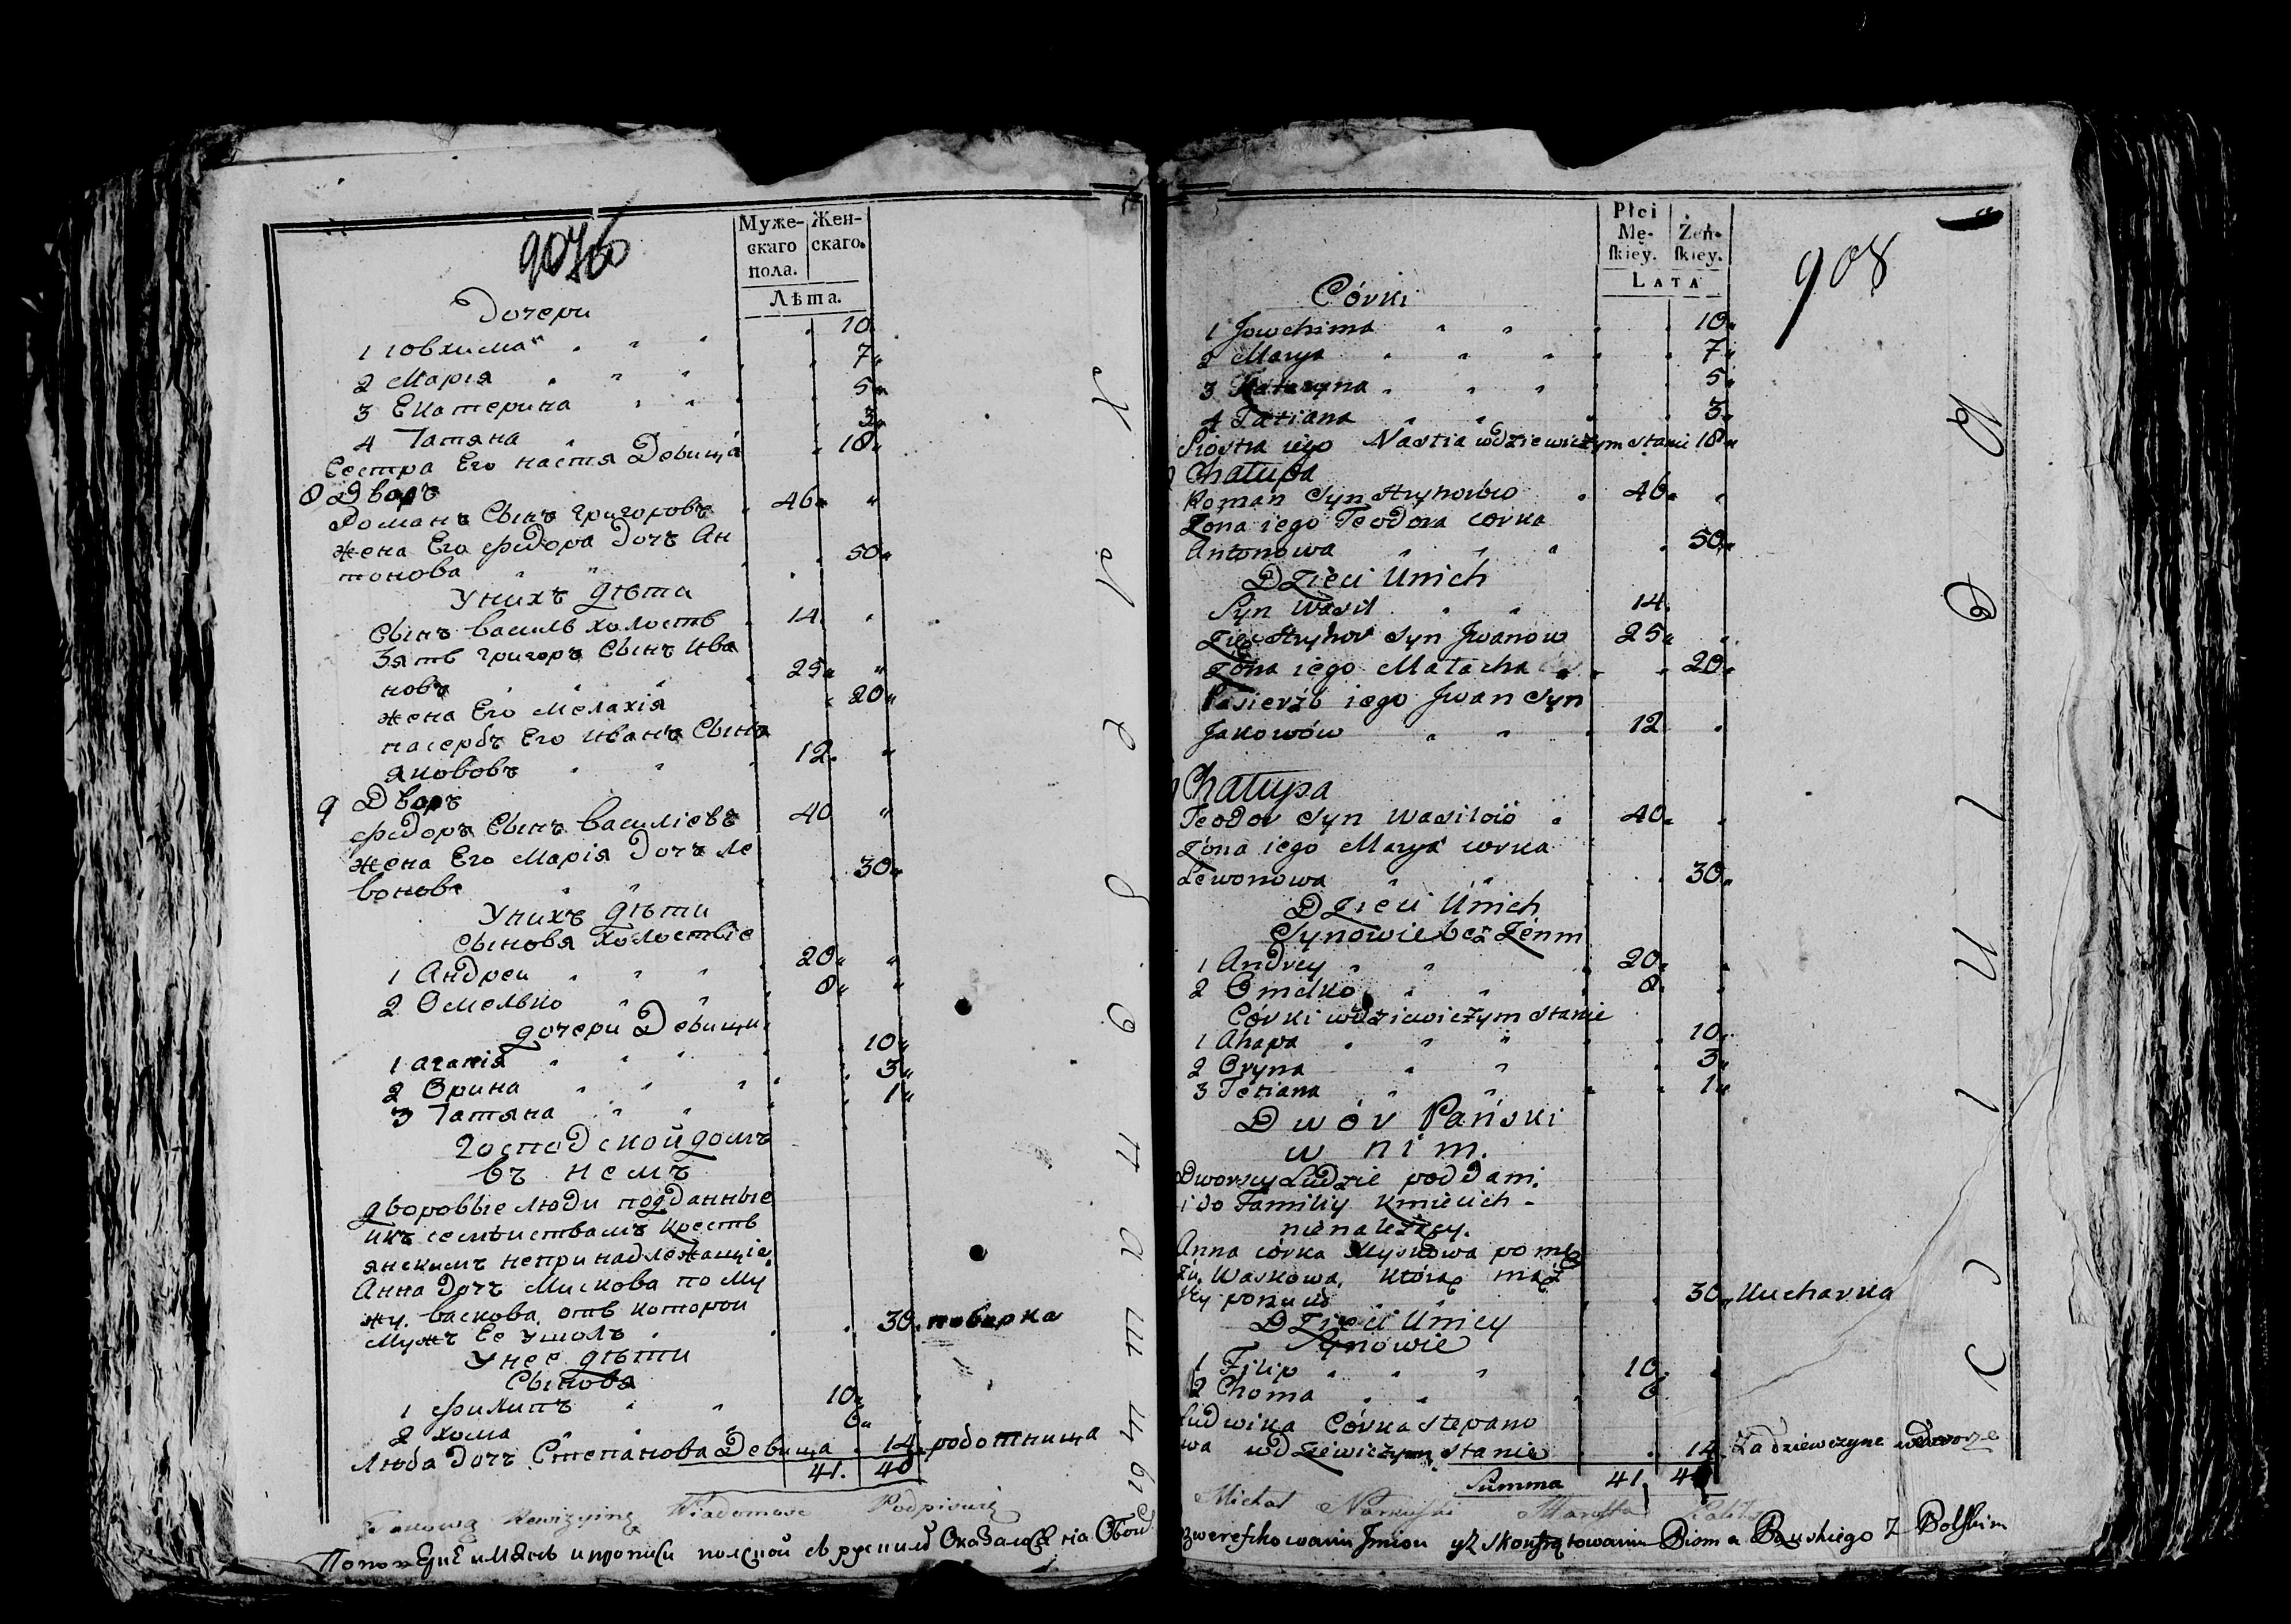 907б
Муже-
скаго
пола.
Жен-
скаго.
Лѣта.
Дочери
1 Ювхима 10
2 Марія 7
3 Екатерина 5
4 Татяна 3
Сестра Его настя Девица 18
8 Дворъ
Романъ Сынъ Григоровъ 46
жена Его Федора Дочъ Ан
тонова 50
У нихъ дѣти
Сынъ василь холостъ 14
Зять григоръ Сынъ Ива
новъ 25
жена Его Мелахія 20
пасербъ Его Иванъ Сынъ
якововъ 12
9 Дворъ
Федоръ Сынъ Василіевъ 40
жена Его Марія Дочъ Ле
вонова 30
У нихъ дѣти
Сыновя холостыіе
1 Андреи 20
2 Омелько 8
дочери Девици
1 Агапія 10
2 Орина 3
3 Татяна 1
Господской домъ
въ немъ
дворовые люди подданные
икъ семѣиствамъ крестъ
янскимъ непринадлежащіе
Анна Дочъ Мискова по му
жу Васкова, отъ которои
мужъ Ее ушолъ 30 поварка
У нее дѣти
Сыновя
1 Филипъ 10
2 хома 6
Люба дочъ Степанова Девица 14 роботница
41. 40
Rewizyiną Wiadomosc Podpisuię
908
Płci
Mę-
skiey.
Żeń-
skiey.
LATA
Córki
1 Jowchima 10
2 Marya 7
3 Katarzyna 5
4 Tatiana 3
Siostra iego Nastia wdziewiczym stanie 18
Chałupa
Roman Syn Hryhorów 46
Zona iego Teodora corka
Antonowa 50
Dzieci Unich
Syn Wasil 14
Zięć Hryhor Syn Jwanow 25
Zona iego Małacha 20
Pasierźb iego Jwan Syn
Jakowów 12
Chałupa
Teodor Syn Wasilów 40
Zona iego Marya corka
Lewonowa 30
Dzieci Unich
Synowie bez Żenni
1 Andrey 20
2 Omelko 8
Córki wdziewiczym stanie
1 Ahapa 10
2 Oryna 3
3 Tetiana 1
Dwór Pański
w nim.
Dworscy Ludzie poddani
i do Familiy Kmiecich
nienależący.
Anna corka Myskowa po mę
żu Waskowa, którą mąż
iey porzucił 30 Kucharka
Dzieci Unicy
Synowie
1 Filip 10
2 Choma 6
Ludwika Córka Stepano
wa wdziewiczym stanie 14 Za dziewczyne wdworze
Summa 41. 40
Michał